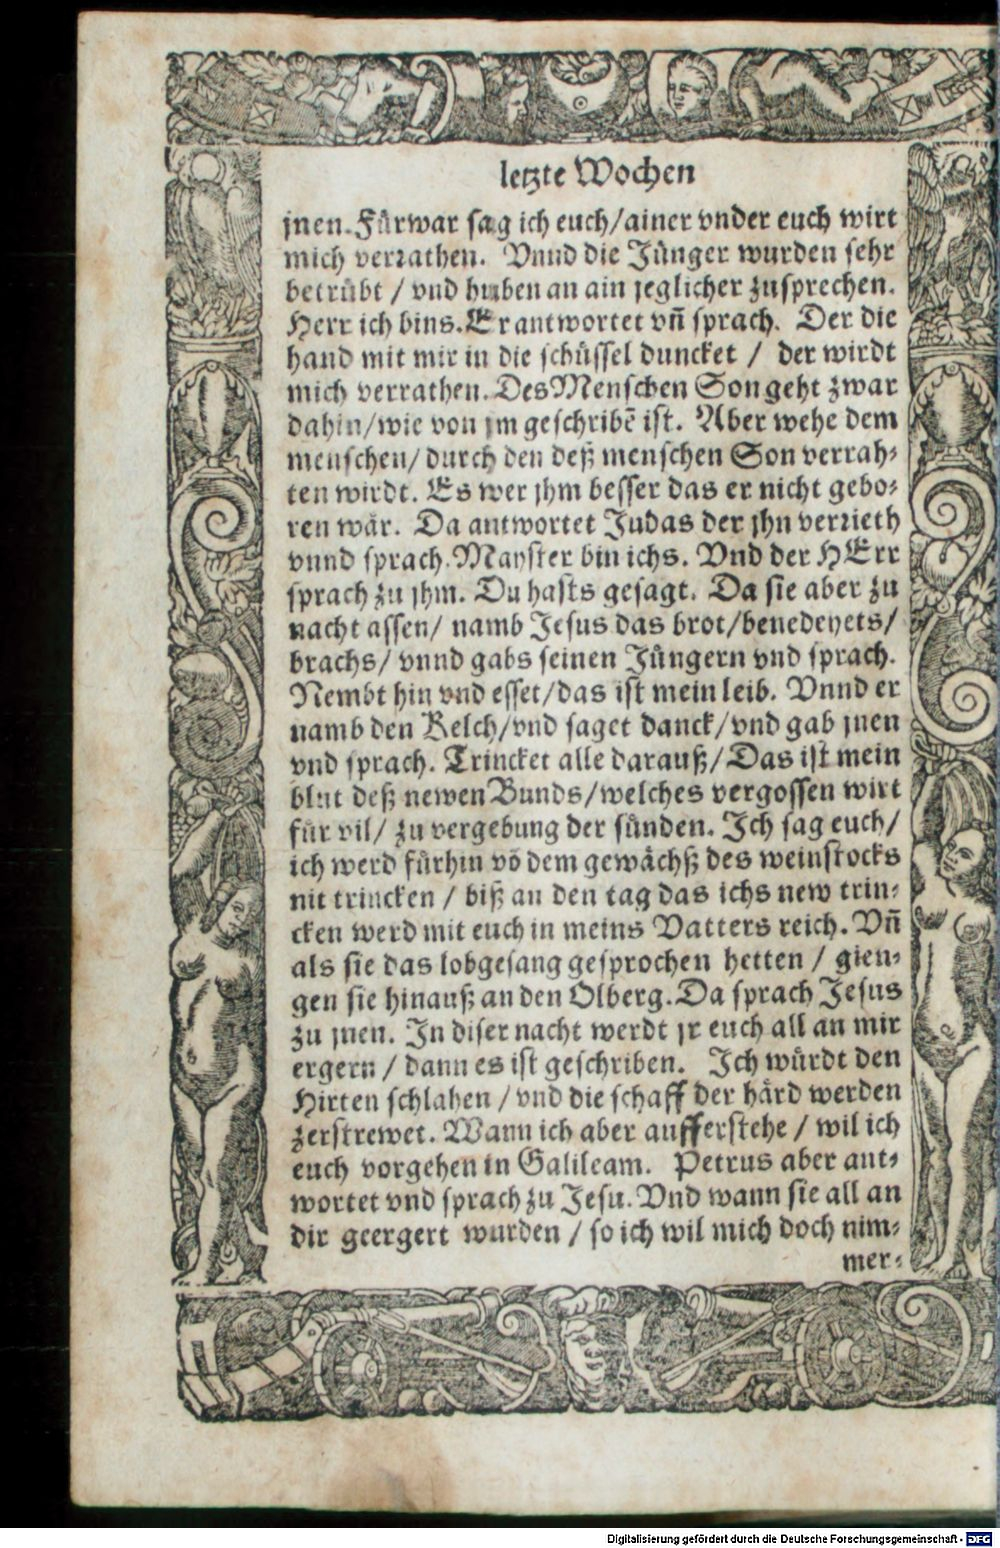 letzte Wochen
jnen. Fürwar sag ich euch/ainer vnder euch wirt
mich verrathen. Vnnd die Jünger wurden sehr
betrübt / vnd huben an ain jeglicher zusprechen.
Herr ich bins. Er antwortet vn̄ sprach. Der die
hand mit mir in die schüssel duncket / der wirdt
mich verrathen. Des Menschen Son geht zwar
dahin/wie von jm geschribē ist. Aber wehe dem
menschen/ durch den deß menschen Son verrah-
ten wirdt. Es wer jhm besser das er nicht gebo-
ren wär. Da antwortet Judas der jhn verrieth
vnnd sprach. Mayster bin ichs. Vnd der HErr
sprach zu jhm. Du hasts gesagt. Da sie aber zu
nacht assen/ namb Jesus das brot/benedeyets/
brachs/ vnnd gabs seinen Jüngern vnd sprach.
Nembt hin vnd esset/das ist mein leib. Vnnd er
namb den Kelch/vnd saget danck/vnd gab jnen
vnd sprach. Trincket alle darauß/Das ist mein
blut deß newen Bunds/welches vergossen wirt
für vil/ zu vergebung der sünden. Ich sag euch/
ich werd fürhin vō dem gewächß des weinstocks
nit trincken / biß an den tag das ichs new trin-
cken werd mit euch in meins Vatters reich. Vn̄
als sie das lobgesang gesprochen hetten / gien-
gen sie hinauß an den Olberg. Da sprach Jesus
zu jnen. In diser nacht werdt jr euch all an mir
ergern / dann es ist geschriben. Ich würdt den
Hirten schlahen / vnd die schaff der härd werden
zerstrewet. Wann ich aber aufferstehe / wil ich
euch vorgehen in Galileam. Petrus aber ant-
wortet vnd sprach zu Jesu. Vnd wann sie all an
dir geergert wurden / so ich wil mich doch nim-
mer-
Digitalisierung gefördert durch die Deutsche Forschungsgemeinschaft - DFG